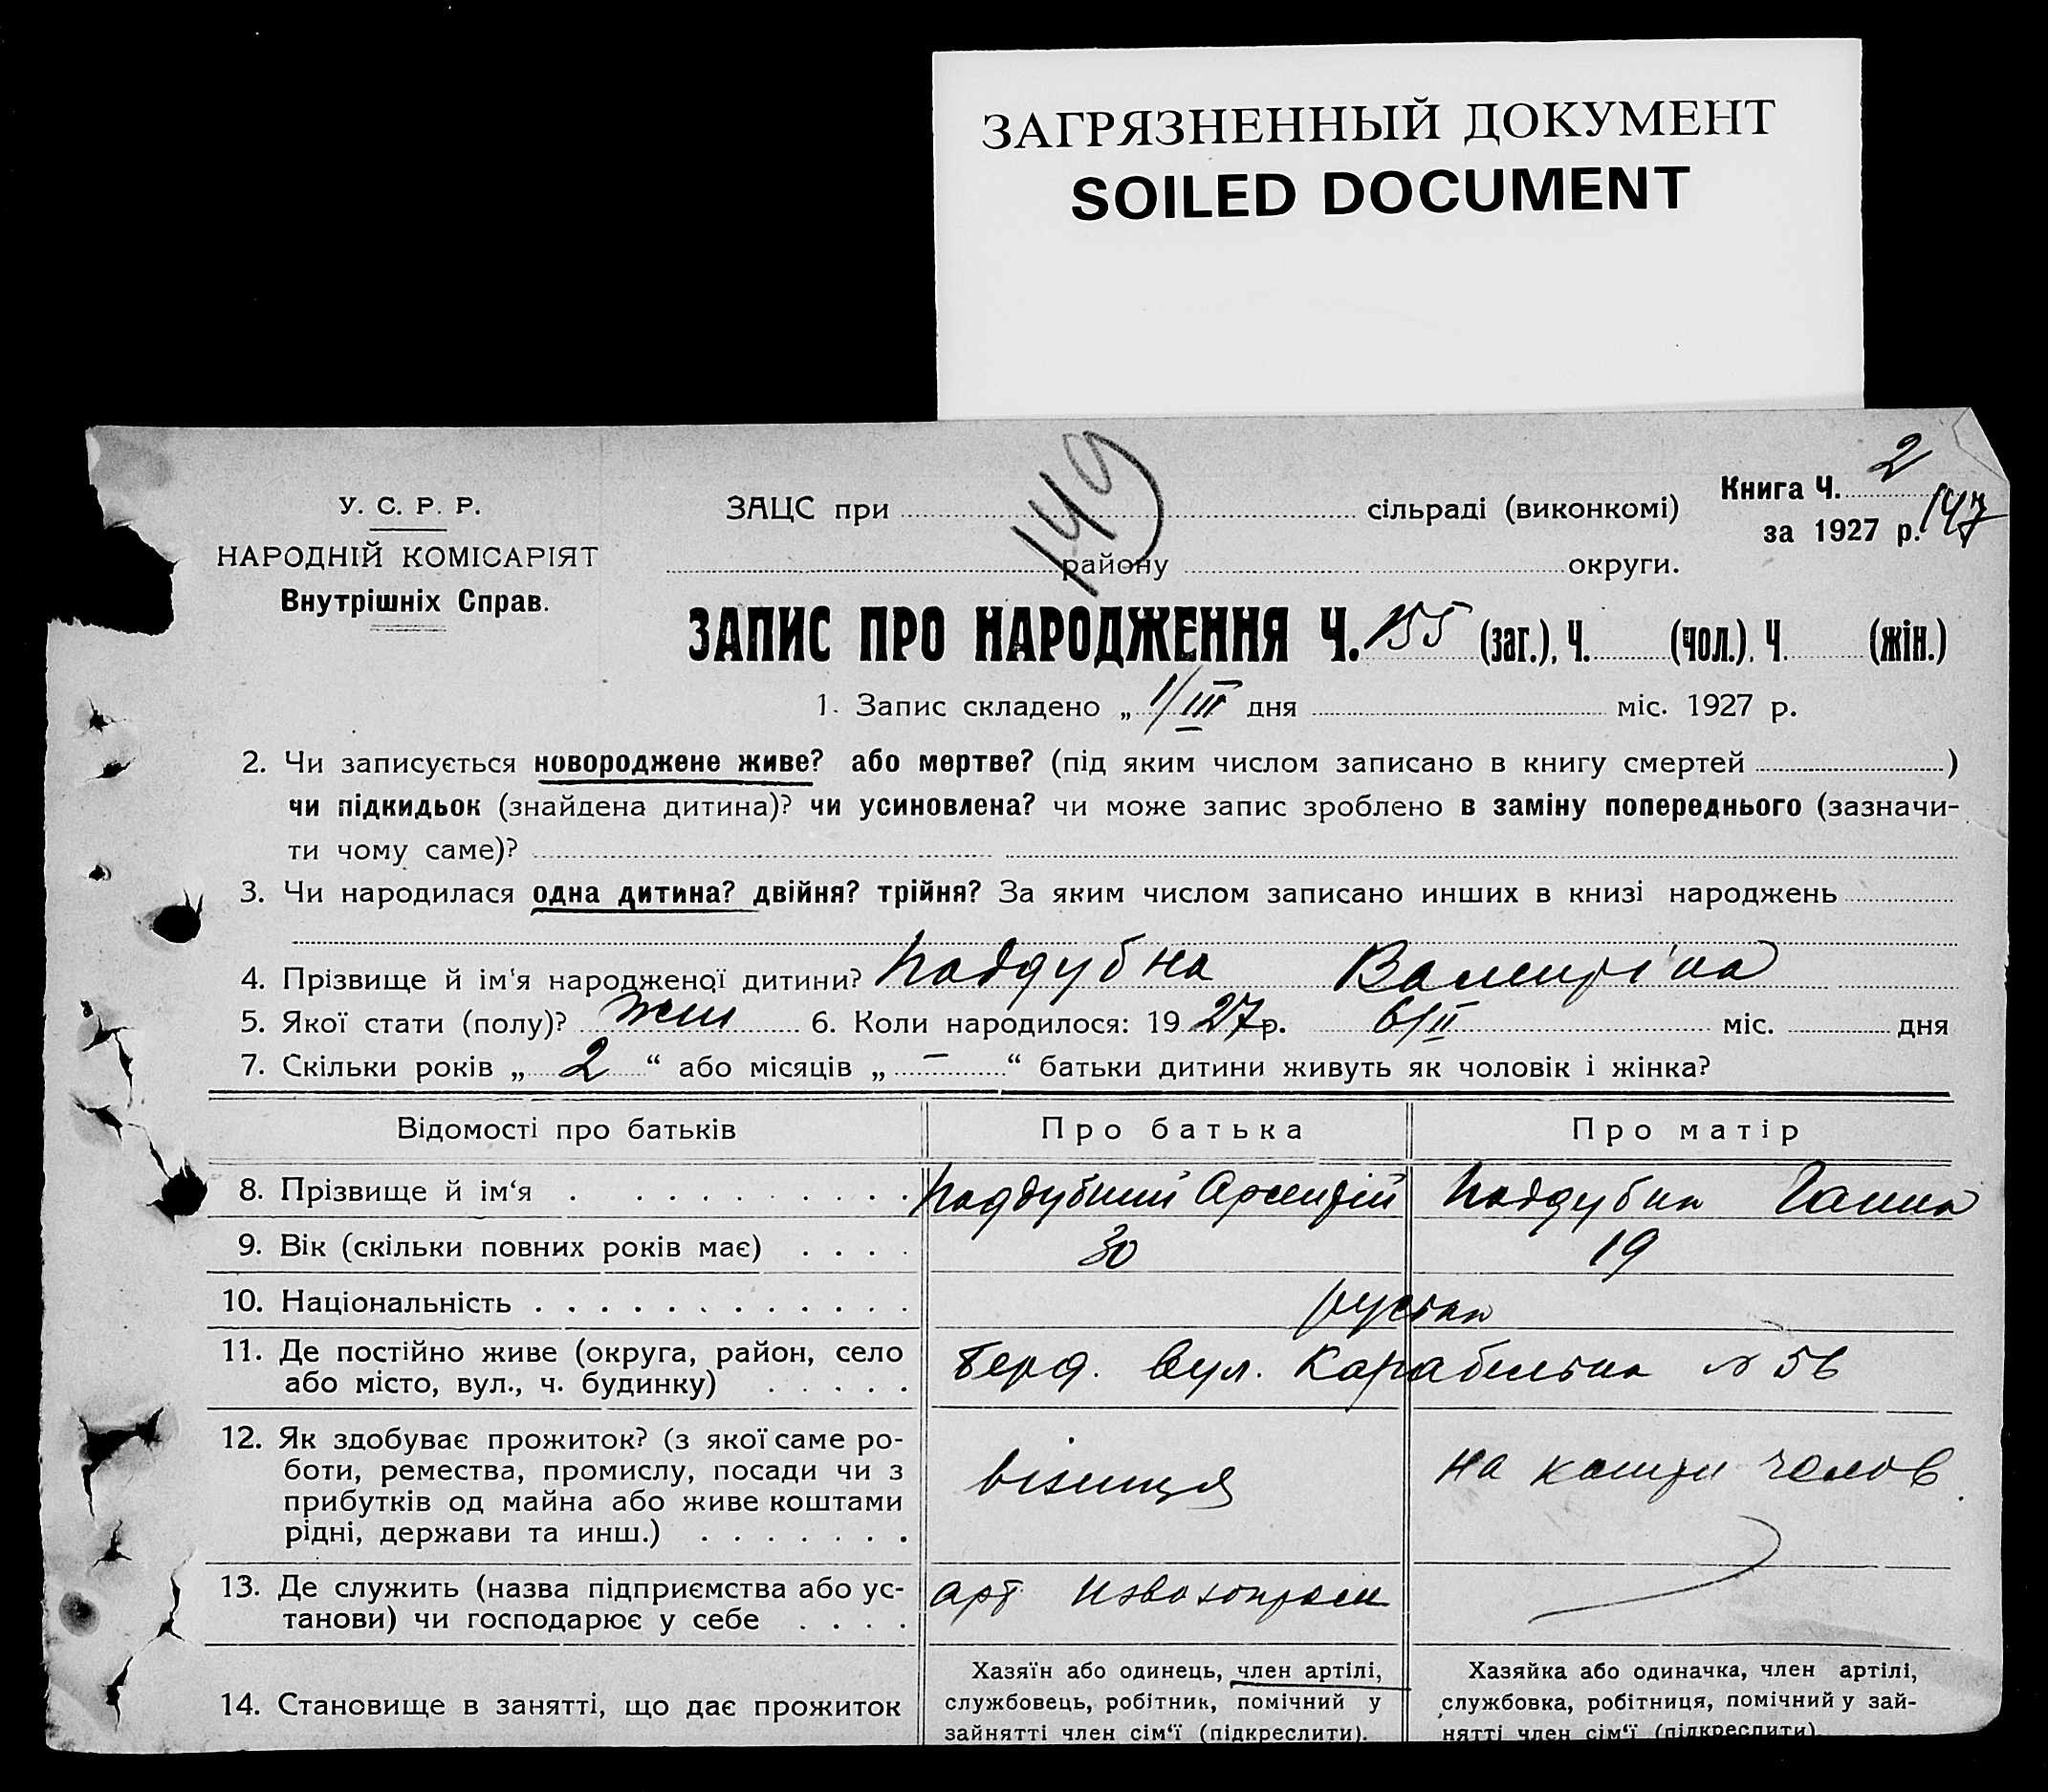 ЗАГРЯЗНЕННЫЙ ДОКУМЕНТ
SOILED DOCUMENT
149
Книга Ч. 2
за 1927 р. 147
У. С. Р. Р.
НАРОДНІЙ КОМІСАРІЯТ
Внутрішніх Справ.
ЗАЦС при сільраді (виконкомі)
району округи.
ЗАПИС ПРО НАРОДЖЕННЯ Ч. 155 (заг.), Ч. (чол.), Ч. (жін.)
1. Запис складено „ 1/III дня міс. 1927 р.
2. Чи записується новороджене живе? або мертве? (під яким числом записано в книгу смертей )
чи підкидьок (знайдена дитина)? чи усиновлена? чи може запис зроблено в заміну попереднього (зазначи-
ти чому саме)?
3. Чи народилася одна дитина? двійня? трійня? За яким числом записано инших в книзі народжень
4. Прізвище й ім‘я народженої дитини? Поддубна
5. Якої стати (полу)? жін 6. Коли народилося: 1927 р. 6/II міс. дня
7. Скільки років „ 2 “ або місяців „ – “ батьки дитини живуть як чоловік і жінка?
Відомості про батьків Про батька Про матір
8. Прізвище й ім‘я Поддубний Арсентій Поддубна Ганна
9. Вік (скільки повних років має) 30 19
10. Національність
11. Де постійно живе (округа, район, село
або місто, вул., ч. будинку)
Берд. вул. Карабельна № 56
12. Як здобуває прожиток? (з якої саме ро-
боти, ремества, промислу, посади чи з
прибутків од майна або живе коштами
рідні, держави та инш.)
візниця
на кошти чолов.
13. Де служить (назва підприємства або ус-
танови) чи господарює у себе
арт
14. Становище в занятті, що дає прожиток
Хазяїн або одинець, член артілі,
службовець, робітник, помічний у
зайнятті член сім‘ї (підкреслити).
Хазяйка або одиначка, член артілі,
службовка, робітниця, помічний у зай-
нятті член сім‘ї (підкреслити).